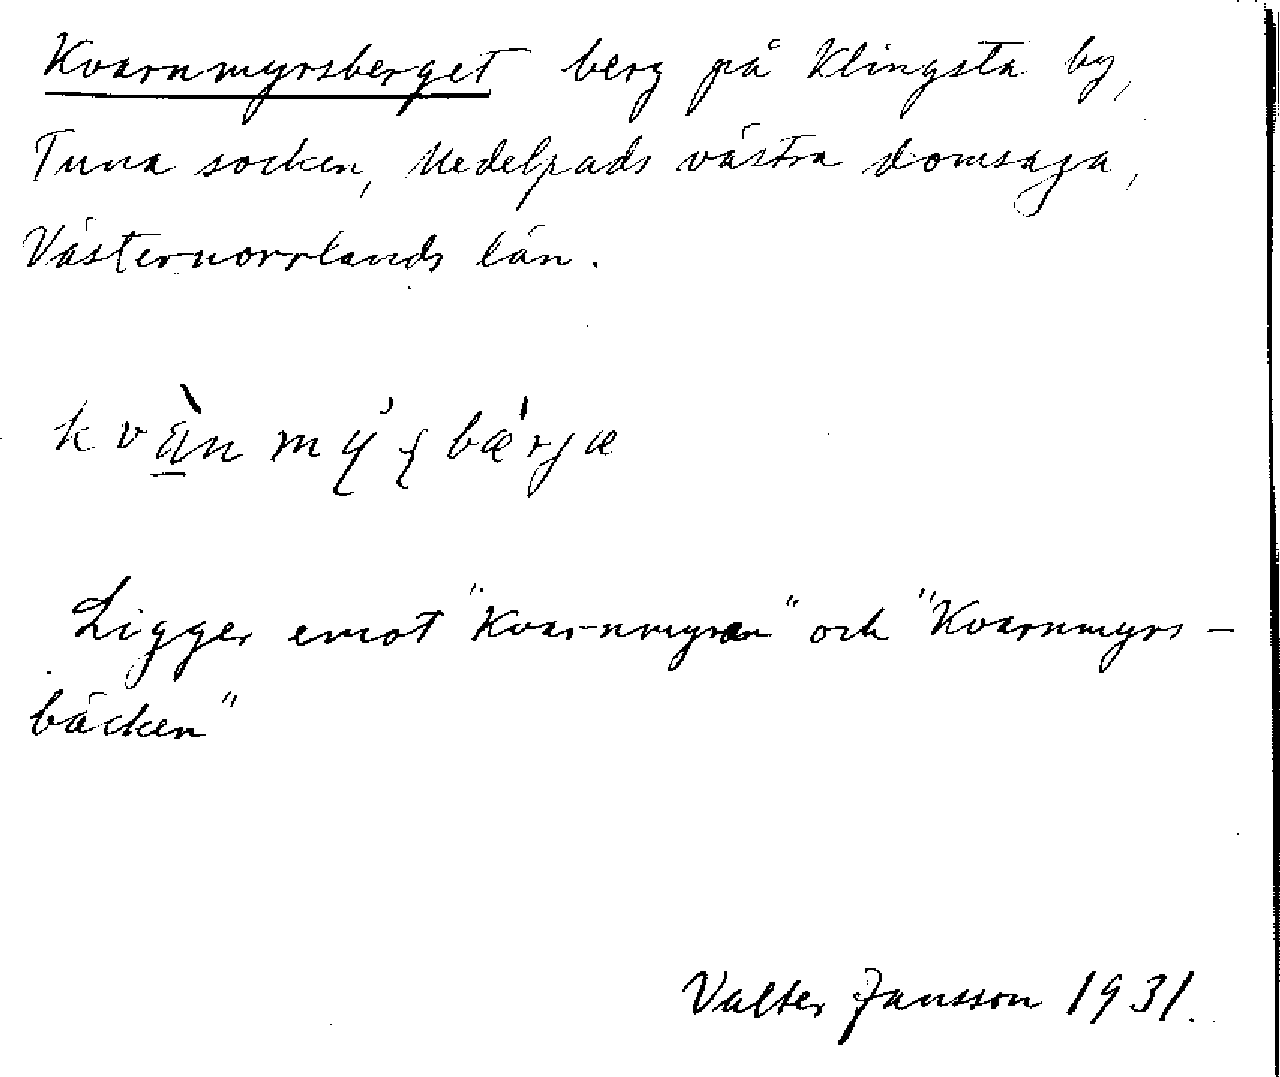 Kvarnmyrsberget berg på Klingsta by,
Tuna socken, Medelpads västra domsaga,
Västernorrlands län.
Ligger emot "Kvarnmyran" och "Kvarnmyrs-
bäcken"
Valter Jansson 1931.